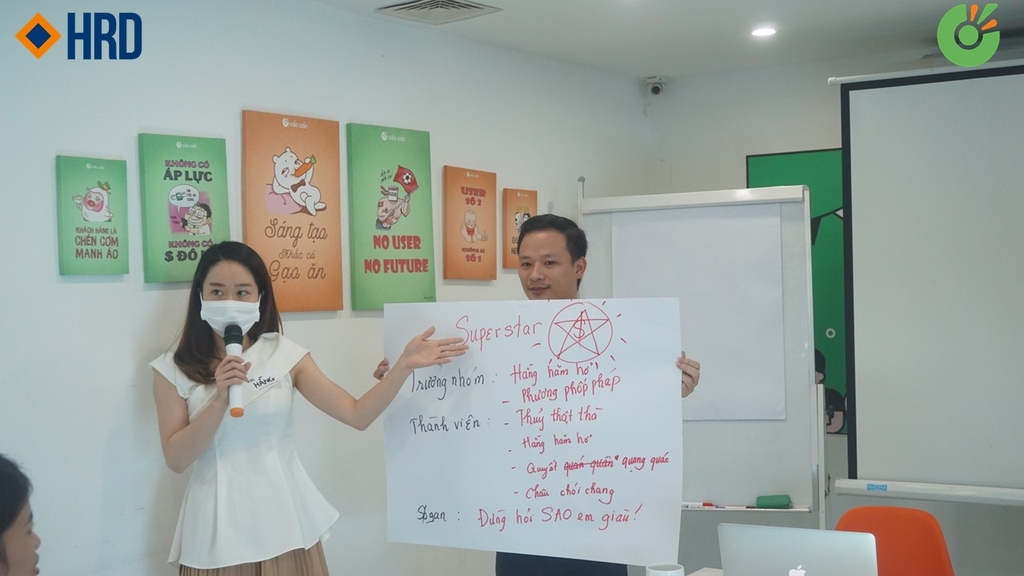 HRD
CỐC CỐC
KHÁCH HÀNG LÀ
CHÉN CƠM
MANH ÁO
CỐC CỐC
KHÔNG CÓ
ÁP LỰC
KHÔNG CÓ
CỐC CỐC
Sáng tạo
khắc có
Gạo ăn
CỐC CỐC
NO USER
NO FUTURE
USER
SỐ 2
KHÔNG AI
SỐ 1
HẰNG
Superstar
$
Trưởng nhóm : Hằng hăm hở
- Phương phốp pháp
Thành viên : - Thuý thật thà
- Hằng hăm hở
- Quyất quấn quăn quang quác
- Châu chói chang
Slogan : Đừng hỏi SAO em giàu!